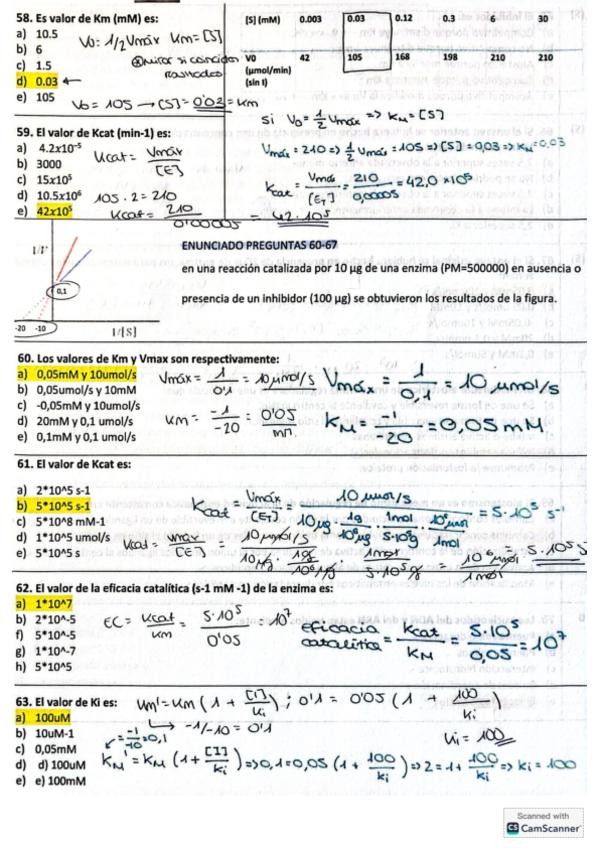 58. Es valor de Km (mM) es:
a) 10.5
b) 6
c) 1.5
d) 0.03 ←
e) 105
V0 = 1/2 Vmáx Km = [S]
V0 = 105 → [S] = 0'02 = Km
[S] (mM) 0.003 0.03 0.12 0.3 6 30
V0 (µmol/min) (sin I) 42 105 168 198 210 210
si V0 = 1/2 Vmáx => KM = [S]
Vmáx = 210 => 1/2 Vmáx = 105 => [S] = 0,03 => KM = 0,03
Kcat = Vmáx/[ET] = 210/0,00005 = 42,0 · 10^5
59. El valor de Kcat (min-1) es:
a) 4.2x10^-5
b) 3000
c) 15x10^5
d) 10.5x10^6
e) 42x10^5
Kcat = Vmáx/[E]
105 · 2 = 210
Kcat = 210/0'00005 = 42 · 10^5
1/V
0,1
-20 -10
1/[S]
ENUNCIADO PREGUNTAS 60-67
en una reacción catalizada por 10 µg de una enzima (PM=500000) en ausencia o
presencia de un inhibidor (100 µg) se obtuvieron los resultados de la figura.
60. Los valores de Km y Vmax son respectivamente:
a) 0,05mM y 10umol/s
b) 0,05umol/s y 10mM
c) -0,05mM y 10umol/s
d) 20mM y 0,1 umol/s
e) 0,1mM y 0,1 umol/s
Vmáx = 1/0'1 = 10 µmol/s
Km = -1/-20 = 0'05 mM
Vmáx = 1/0,1 = 10 µmol/s
KM = -1/-20 = 0,05 mM.
61. El valor de Kcat es:
a) 2*10^5 s-1
b) 5*10^5 s-1
c) 5*10^8 mM-1
d) 1*10^5 umol/s
e) 5*10^5 s
Kcat = Vmáx/[ET] = 10 µmol/s / 10 µg · 1g/10^6 µg · 1mol/5·10^5 g · 10^6 µmol/1mol = 5·10^5 s^-1
Kcat = Vmáx/[E]
62. El valor de la eficacia catalítica (s-1 mM -1) de la enzima es:
a) 1*10^7
b) 2*10^-5
f) 5*10^-5
g) 1*10^-7
h) 5*10^5
EC = Kcat/Km = 5·10^5/0'05 = 10^7
Eficacia catalítica = Kcat/KM = 5·10^5/0,05 = 10^7
63. El valor de Ki es:
a) 100uM
b) 10uM-1
c) 0,05mM
d) d) 100uM
e) e) 100mM
Km' = Km (1 + [I]/Ki) ; 0'1 = 0'05 (1 + 100/Ki)
→ -1/-10 = 0'1
Ki = 100
= -1/-10 = 0,1
KM' = KM (1 + [I]/Ki) => 0,1 = 0,05 (1 + 100/Ki) => 2 = 1 + 100/Ki => Ki = 100
Scanned with
CS CamScanner